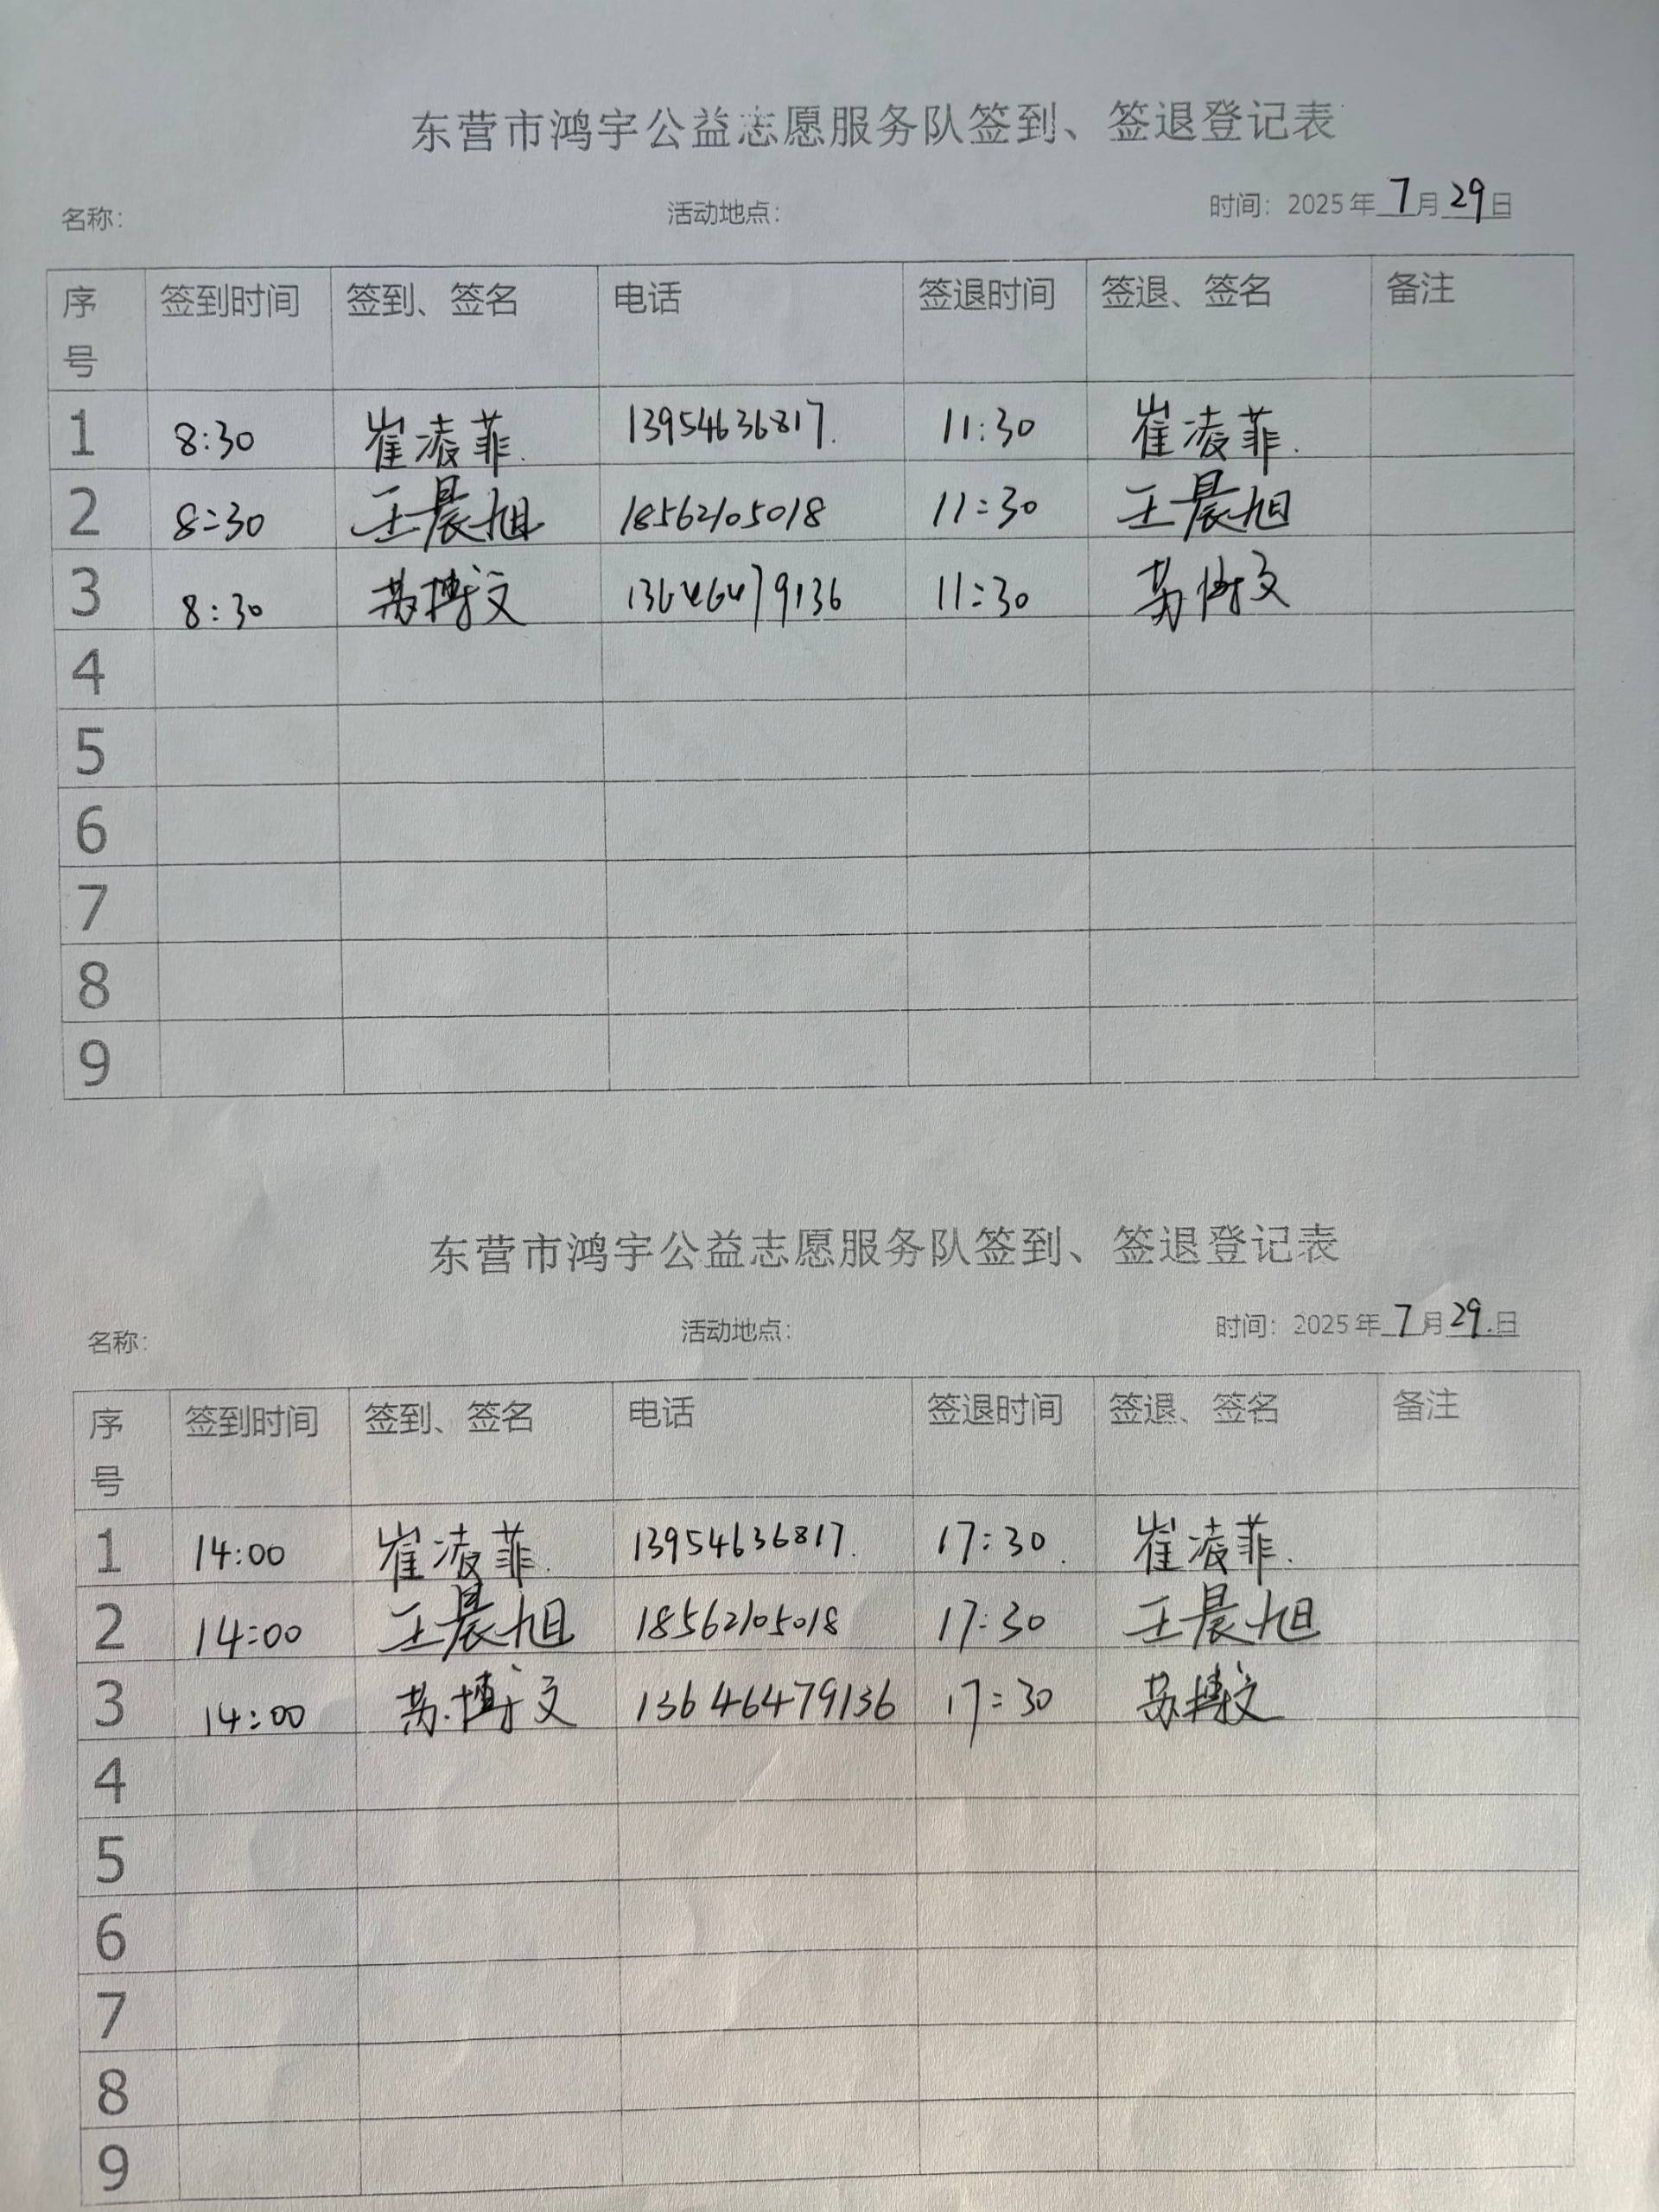 东营市鸿宇公益志愿服务队签到、签退登记表
名称： 活动地点： 时间：2025年 7月 29日
序号 签到时间 签到、签名 电话 签退时间 签退、签名 备注
1 8:30 崔凌菲. 13954636817. 11:30 崔凌菲.
2 8:30 王晨旭 18562105018 11:30 王晨旭
3 8:30 苏博文 13646479136 11:30 苏博文
4
5
6
7
8
9
东营市鸿宇公益志愿服务队签到、签退登记表
名称： 活动地点： 时间：2025年 7月 29.日
序号 签到时间 签到、签名 电话 签退时间 签退、签名 备注
1 14:00 崔凌菲. 13954636817. 17:30. 崔凌菲.
2 14:00 王晨旭 18562105018 17:30 王晨旭
3 14:00 苏博文 13646479136 17:30 苏博文
4
5
6
7
8
9